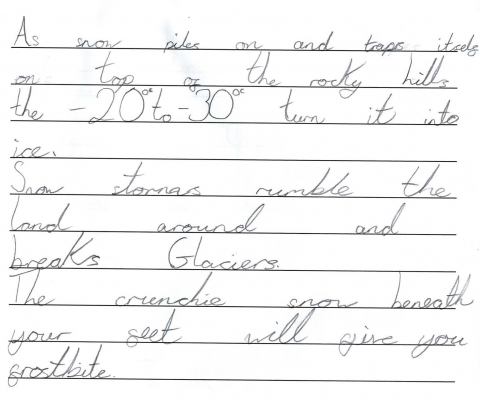 As snow piles on and traps itself
on top of the rocky hills
the -20°c to -30°c turn it into
ice.
Snow stornars rumble the
land around and
breaks Glaciers.
The crunchie snow beneath
your feet will give you
frostbite.